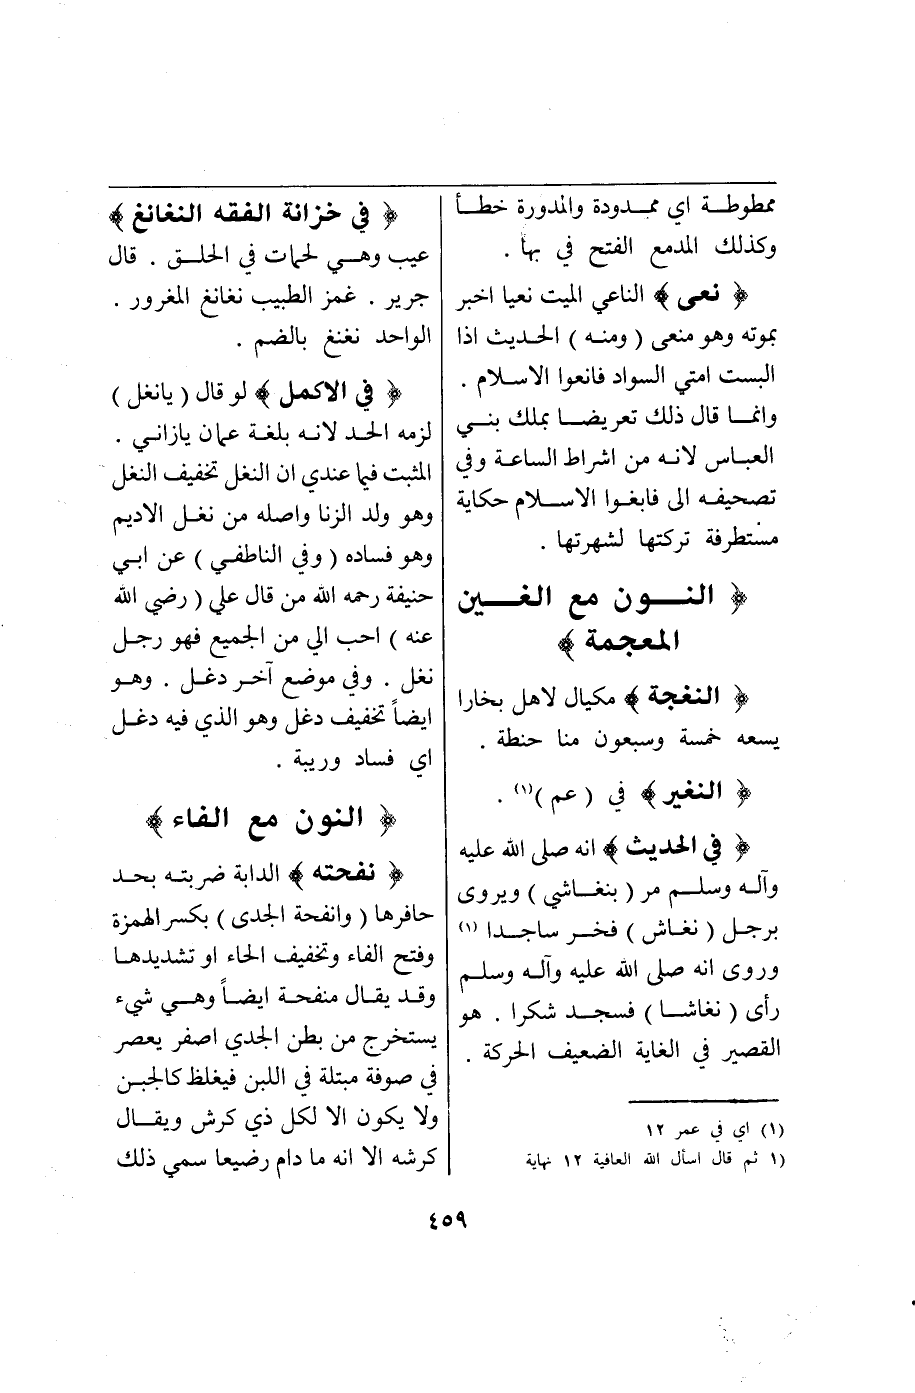 ممطوطة اي ممدودة والمدورة خطأ
وكذلك المدمع الفتح في بها .
﴿ نعى ﴾ الناعي الميت نعيا اخبر
بموته وهو منعى ( ومنه ) الحديث اذا
البست امتي السواد فانعوا الاسلام .
وانما قال ذلك تعريضا بملك بني
العباس لانه من اشراط الساعة وفي
تصحيفه الى فابغوا الاسلام حكاية
مستطرفة تركتها لشهرتها .
﴿ النون مع الغين
المعجمة ﴾
﴿ النغجة ﴾ مكيال لاهل بخارا
يسعه خمسة وسبعون منا حنطة .
﴿ النغير ﴾ في ( عم )(١) .
﴿ في الحديث ﴾ انه صلى الله عليه
وآله وسلم مر ( بنغاشي ) ويروى
برجل ( نغاش ) فخر ساجدا (١)
وروى انه صلى الله عليه وآله وسلم
رأى ( نغاشا ) فسجد شكرا . هو
القصير في الغاية الضعيف الحركة .
(١) اي في عمر ١٢
(١ ثم قال اسأل الله العافية ١٢ نهاية
﴿ في خزانة الفقه النغانغ ﴾
عيب وهي لحمات في الحلق . قال
جرير . غمز الطبيب نغانغ المغرور .
الواحد نغنغ بالضم .
﴿ في الاكمل ﴾ لو قال ( يانغل )
لزمه الحد لانه بلغة عمان يازاني .
المثبت فيما عندي ان النغل تخفيف النغل
وهو ولد الزنا واصله من نغل الاديم
وهو فساده ( وفي الناطفي ) عن ابي
حنيفة رحمه الله من قال علي ( رضي الله
عنه ) احب الي من الجميع فهو رجل
نغل . وفي موضع آخر دغل . وهو
ايضاً تخفيف دغل وهو الذي فيه دغل
اي فساد وريبة .
﴿ النون مع الفاء ﴾
﴿ نفحته ﴾ الدابة ضربته بحد
حافرها ( وانفحة الجدى ) بكسر الهمزة
وفتح الفاء وتخفيف الحاء او تشديدها
وقد يقال منفحة ايضاً وهي شيء
يستخرج من بطن الجدي اصفر يعصر
في صوفة مبتلة في اللبن فيغلظ كالجبن
ولا يكون الا لكل ذي كرش ويقال
كرشه الا انه ما دام رضيعا سمي ذلك
٤٥٩